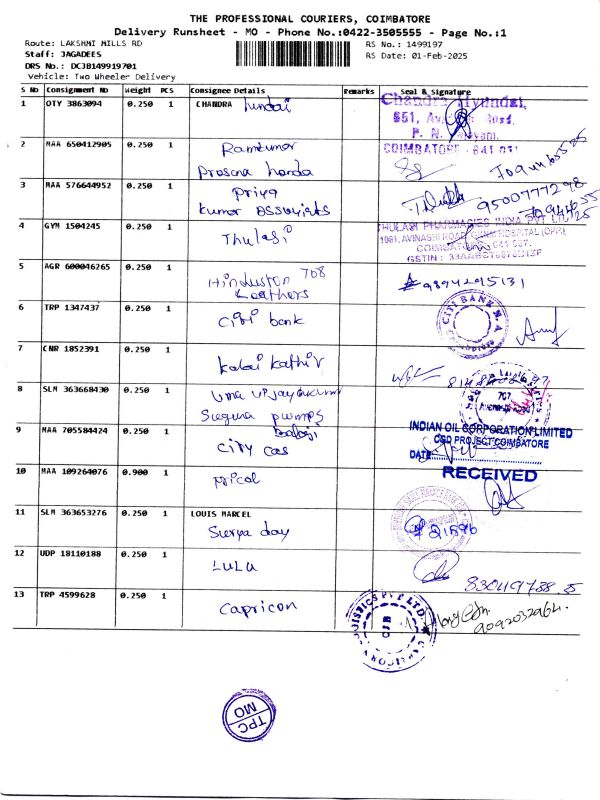 THE PROFESSIONAL COURIERS, COIMBATORE
Delivery Runsheet - MO - Phone No.:0422-3505555 - Page No.:1
Route: LAKSHMI MILLS RD
RS No.: 1499197
Staff: JAGADEES
RS Date: 01-Feb-2025
DRS No.: DCJB149919701
Vehicle: Two Wheeler Delivery
S No Consignment No Weight PCS Consignee Details Remarks Seal & Signature
1 OTY 3863094 0.250 1 CHANDRA
Chandra Hyundai,
COIMBATORE - 641 031
2 MAA 650412905 0.250 1 Ramkumar
Prasana honda
3 MAA 576644952 0.250 1 Priya
Kumar 9500777298
4 GYM 1504245 0.250 1 Thulasi
THULASI PHARMACIES INDIA PVT LTD
5 AGR 600046265 0.250 1 Hinduston 708
Leathers 98942015131
6 TRP 1347437 0.250 1 Citi bank
CITI BANK N.A
7 CNR 1852391 0.250 1 Kalai Kathir
8 SLM 363668430 0.250 1 Uma
Suguna pumps
707
9 MAA 705584424 0.250 1 City Gas
INDIAN OIL CORPORATION LIMITED
CGD PROJECT COIMBATORE
DATE
RECEIVED
10 MAA 109264076 0.900 1 Pricol
11 SLM 363653276 0.250 1 LOUIS MARCEL
Surya day
12 UDP 18110188 0.250 1 LULU
13 TRP 4599628 0.250 1 Capricon
9092032962
CJB
TPC
MO